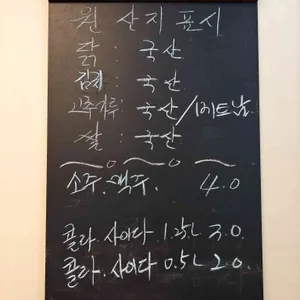 원 산지 표시
닭 : 국산
김치 : 국산
고추가루 : 국산/베트남
쌀 : 국산
소주. 맥주. 4.0
콜라. 사이다 1.25L 3.0.
콜라. 사이다 0.5L 2.0.